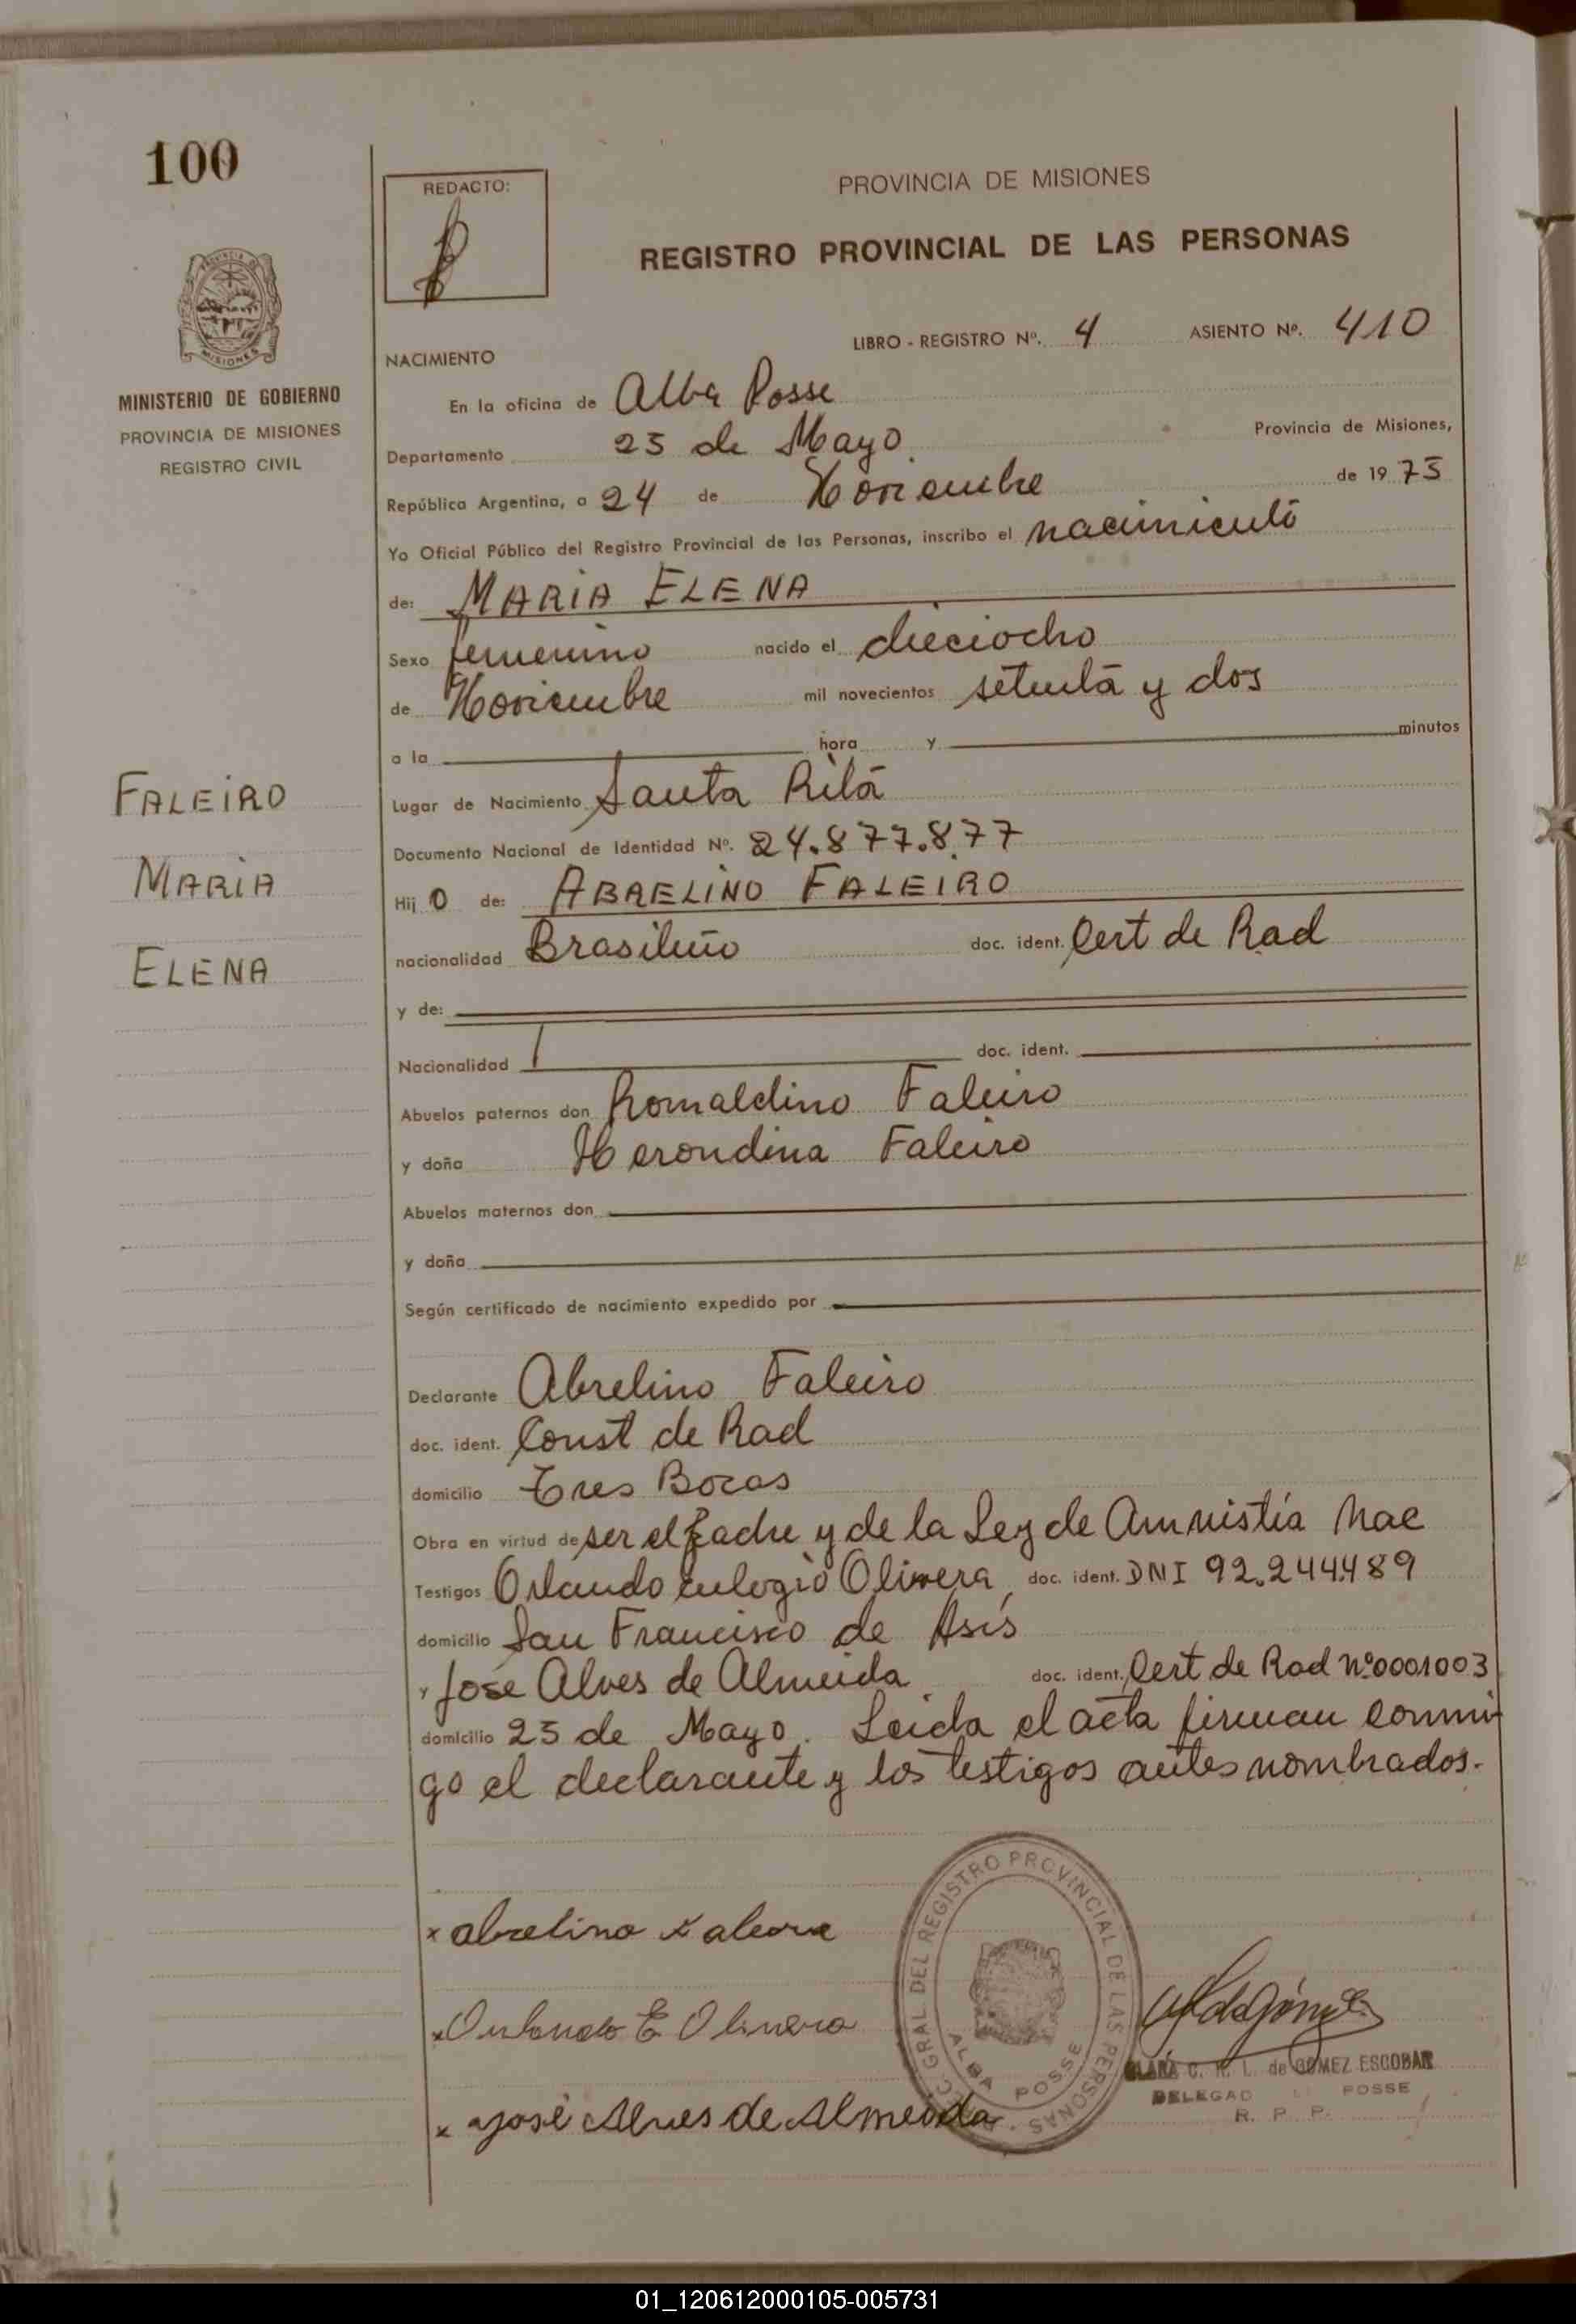 100
REDACTO:
PROVINCIA DE MISIONES
REGISTRO PROVINCIAL DE LAS PERSONAS
LIBRO - REGISTRO Nº. 4 ASIENTO Nº. 410
MISIONES
MINISTERIO DE GOBIERNO
PROVINCIA DE MISIONES
REGISTRO CIVIL
NACIMIENTO
En la oficina de Alba Posse
Departamento 25 de Mayo Provincia de Misiones,
República Argentina, a 24 de Noviembre de 1975
Yo Oficial Público del Registro Provincial de las Personas, inscribo el nacimiento
de: MARIA ELENA
Sexo femenino nacido el dieciocho
de Noviembre mil novecientos setenta y dos
a la hora y minutos
FALEIRO
MARIA
ELENA
Lugar de Nacimiento Santa Rita
Documento Nacional de Identidad Nº. 24.877.877
Hij O de: ABRELINO FALEIRO
nacionalidad Brasileño doc. ident. Cert de Rad
y de:
Nacionalidad doc. ident.
Abuelos paternos don Romaldino Faleiro
y doña Herondina Faleiro
Abuelos maternos don
y doña
Según certificado de nacimiento expedido por
Declarante Abrelino Faleiro
doc. ident. Const de Rad
domicilio Tres Bocas
Obra en virtud de ser el padre y de la Ley de Amnistía Nac
Testigos Orlando Eulogio Olivera doc. ident. DNI 92.244.489
domicilio San Francisco de Asís
y José Alves de Almeida doc. ident. Cert de Rad Nº 0001003
domicilio 25 de Mayo. Leida el acta firman conmi-
go el declarante y los testigos antes nombrados.
x abrelino
x Orlando E Olivera
x José Alves de Almeida
GRAL DEL REGISTRO PROVINCIAL DE LAS PERSONAS
ALBA POSSE
CLARA C. de GOMEZ ESCOBAR
POSSE
R. P. P.
01_120612000105-005731